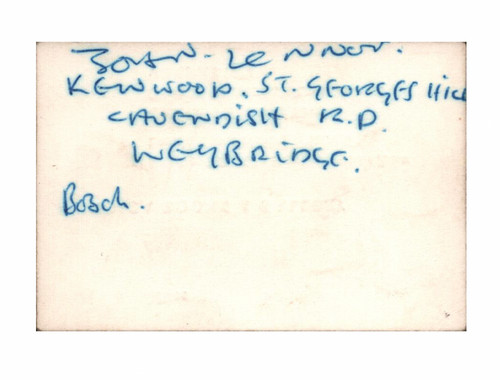 JOHN. LENNON.
KENWOOD. ST. GEORGES HILL
CAVENDISH R.D.
WEYBRIDGE.
Bosch.